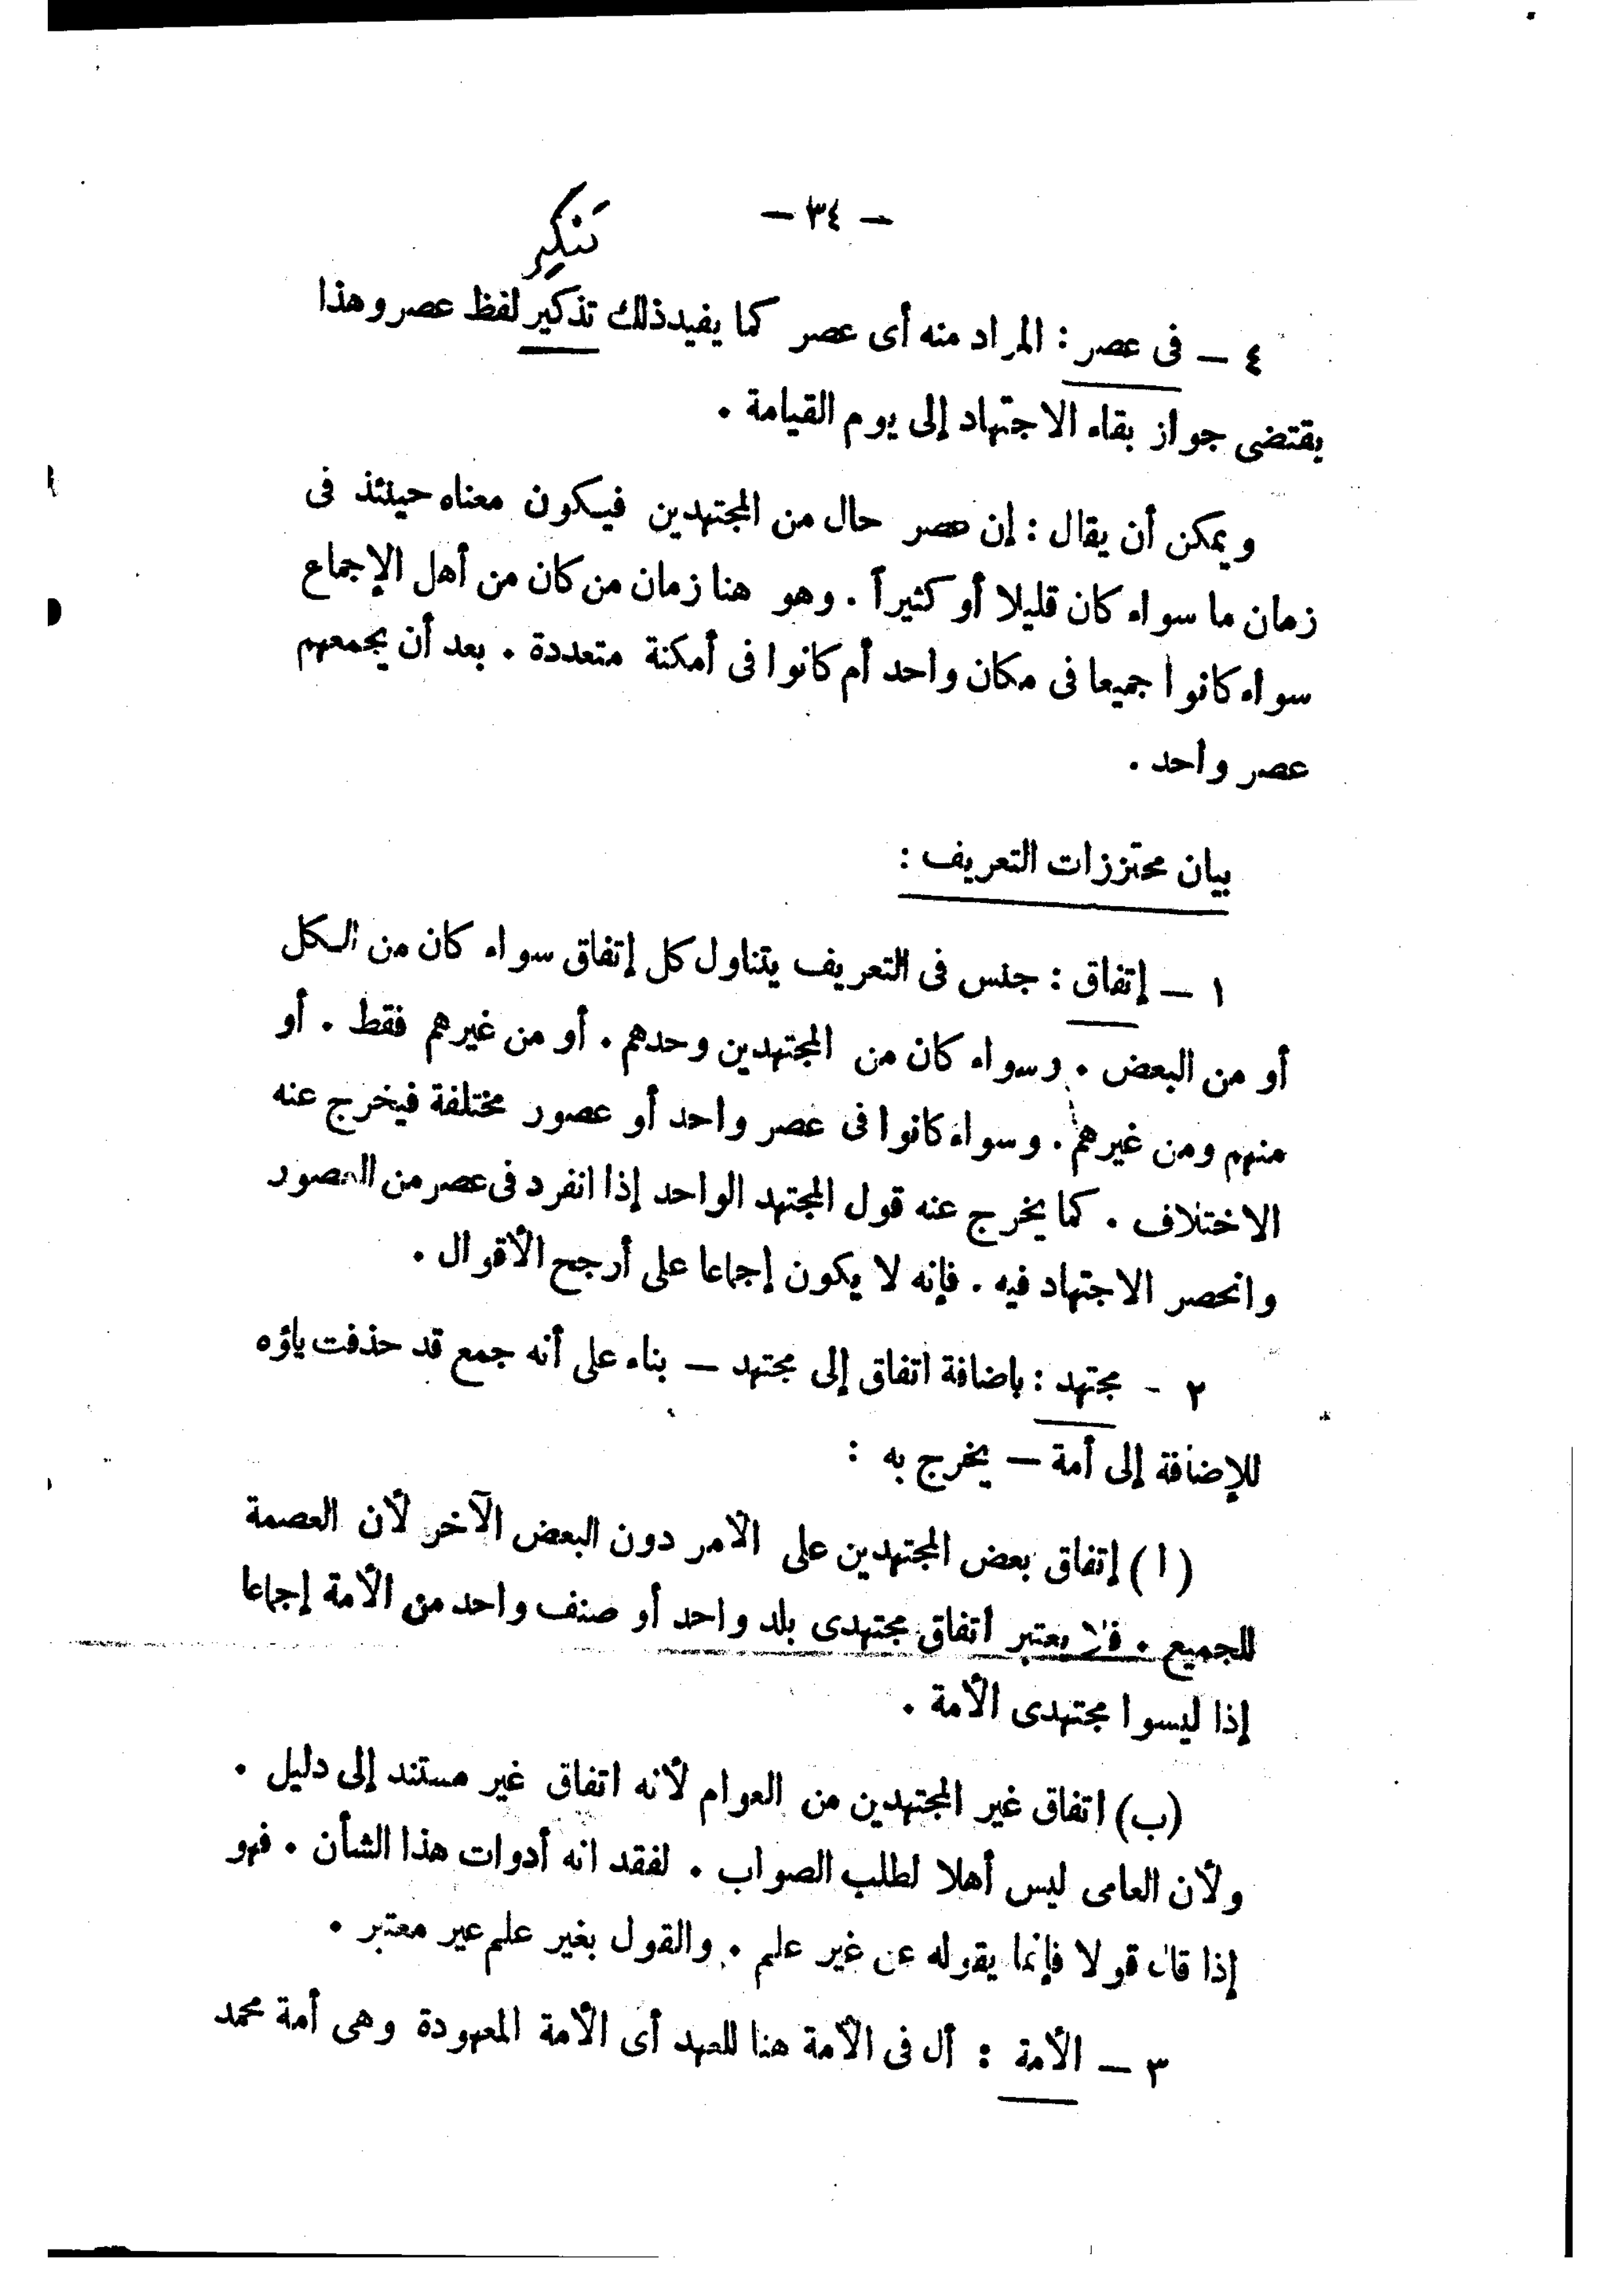 — ٣٤ —
تنكير
٤ — فى عصر : المراد منه أى عصر كما يفيد ذلك تذكير لفظ عصر وهذا
يقتضى جواز بقاء الاجتهاد إلى يوم القيامة .
ويمكن أن يقال : إن عصر حال من المجتهدين فيكون معناه حينئذ فى
زمان ما سواء كان قليلا أو كثيراً . وهو هنا زمان من كان من أهل الإجماع
سواء كانوا جميعا فى مكان واحد أم كانوا فى أمكنة متعددة . بعد أن يجمعهم
عصر واحد .
بيان محتززات التعريف :
١ — إتفاق : جنس فى التعريف يتناول كل إتفاق سواء كان من الكل
أو من البعض . وسواء كان من المجتهدين وحدهم . أو من غيرهم فقط . أو
منهم ومن غيرهم . وسواء كانوا فى عصر واحد أو عصور مختلفة فيخرج عنه
الاختلاف . كما يخرج عنه قول المجتهد الواحد إذا انفرد فى عصر من العصور
وانحصر الاجتهاد فيه . فإنه لا يكون إجماعا على أرجح الأقوال .
٢ - مجتهد : بإضافة اتفاق إلى مجتهد — بناء على أنه جمع قد حذفت ياؤه
للإضافة إلى أمة — يخرج به :
( ا ) إتفاق بعض المجتهدين على الأمر دون البعض الآخر لأن العصمة
للجميع . فلا يعتبر اتفاق مجتهدى بلد واحد أو صنف واحد من الأمة إجماعا
إذا ليسوا مجتهدى الأمة .
(ب) اتفاق غير المجتهدين من العوام لأنه اتفاق غير مستند إلى دليل .
ولأن العامى ليس أهلا لطلب الصواب . لفقد انه أدوات هذا الشأن . فهو
إذا قال قولا فإنما يقوله عن غير علم . والقول بغير علم غير معتبر .
٣ — الأمة : أل فى الأمة هنا للعهد أى الأمة المعهودة وهى أمة محمد